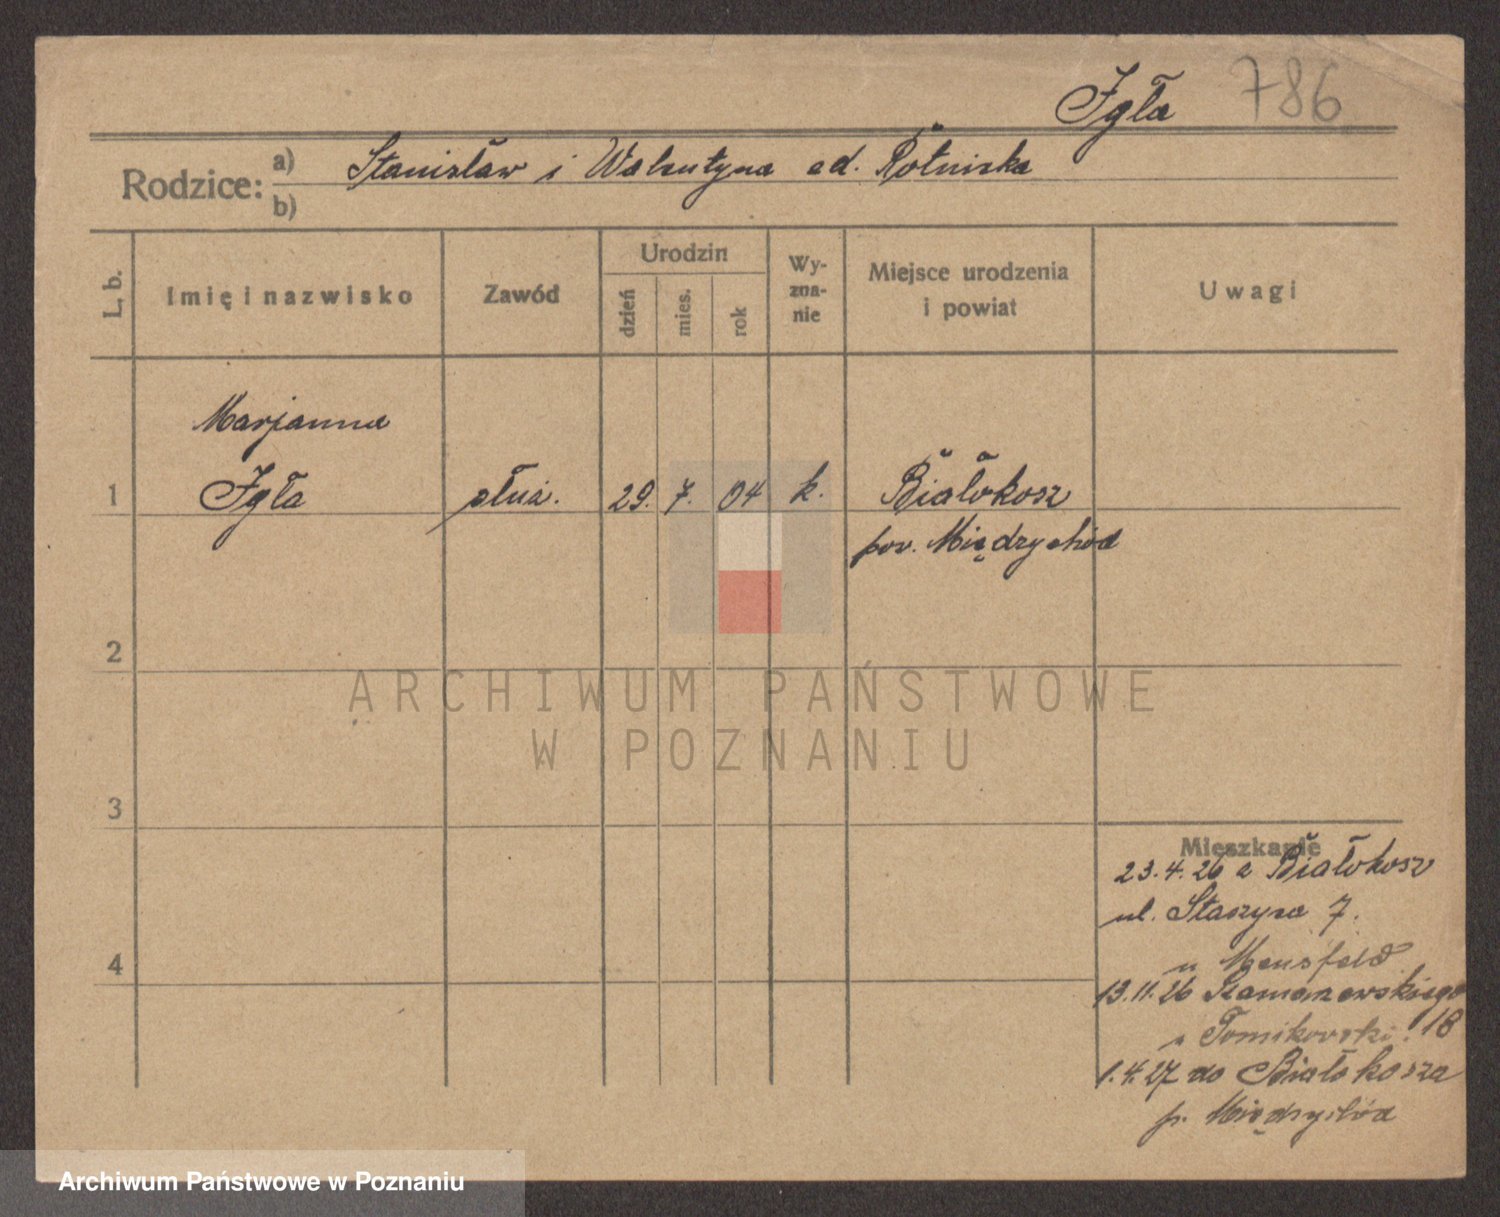 Igła 786
Rodzice: a) Stanisław i Walentyna zd. Rółniska
b)
L. b. Imię i nazwisko Zawód Urodzin dzień mies. rok Wy-zna-nie Miejsce urodzenia i powiat Uwagi
Marjanna
1 Igła służ. 29. 7. 04 k. Białokosz
pow. Międzychód
2
ARCHIWUM PAŃSTWOWE
W POZNANIU
3
Mieszkanie
23.4.26 z Białokosz
ul. Staszyca 7.
u Mensfeld
4
13.11.26 Szamarzewskiego 18
u Tomikowski
1.4.27 do Białokosza
p. Międzychód
Archiwum Państwowe w Poznaniu